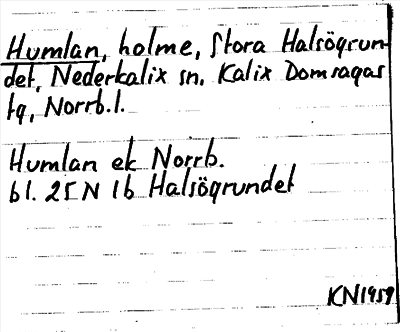 Humlan, holme, Stora Halsögrun-
det, Nederkalix sn. Kalix Domsagas
tg, Norrb.l.
Humlan ek Norrb.
bl. 25 N 1b Halsögrundet
KN1959